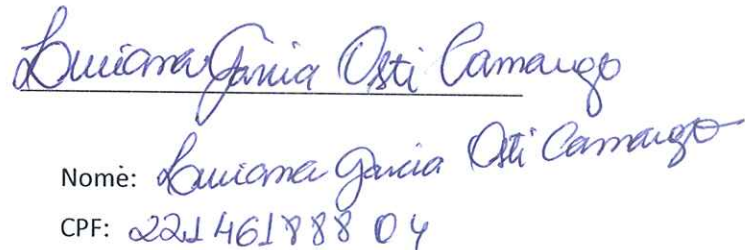 Luciana Garcia Osti Camargo
Nome: Luciana Garcia Osti Camargo
CPF: 221461888 04